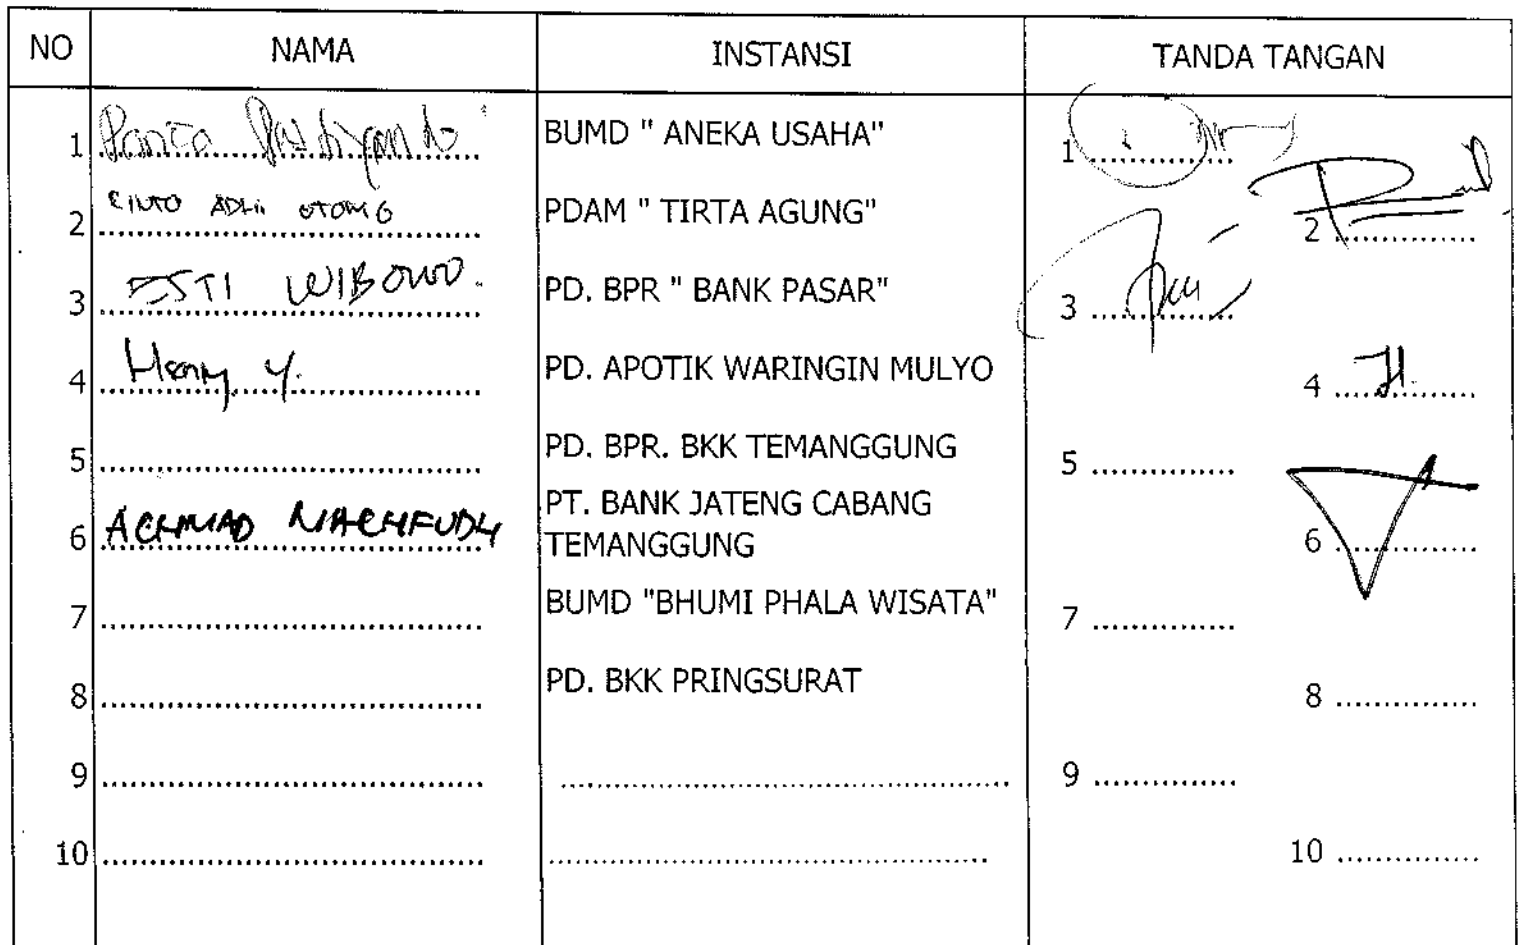 NO NAMA INSTANSI TANDA TANGAN
1 BUMD " ANEKA USAHA" 1
2 ADHI PDAM " TIRTA AGUNG" 2
3 ESTI WIBOWO. PD. BPR " BANK PASAR" 3
4 Henny Y. PD. APOTIK WARINGIN MULYO 4
5 PD. BPR. BKK TEMANGGUNG 5
6 ACHMAD MACHFUDH PT. BANK JATENG CABANG
TEMANGGUNG 6
7 BUMD "BHUMI PHALA WISATA" 7
8 PD. BKK PRINGSURAT 8
9 9
10 10